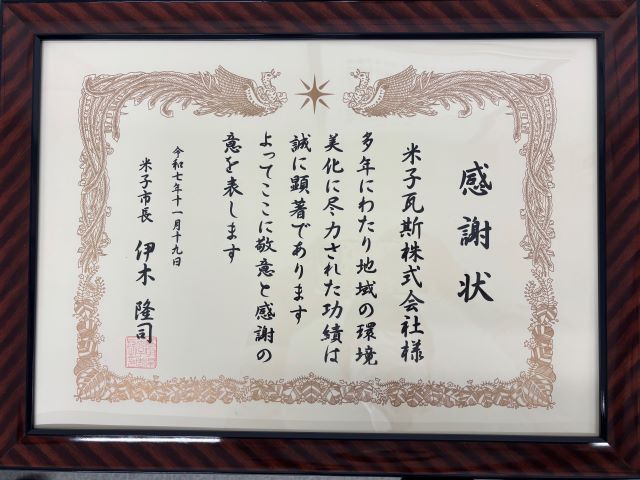 感謝状
米子瓦斯株式会社様
多年にわたり地域の環境
美化に尽力された功績は
誠に顕著であります
よってここに敬意と感謝の
意を表します
令和七年十一月十九日
米子市長 伊木隆司